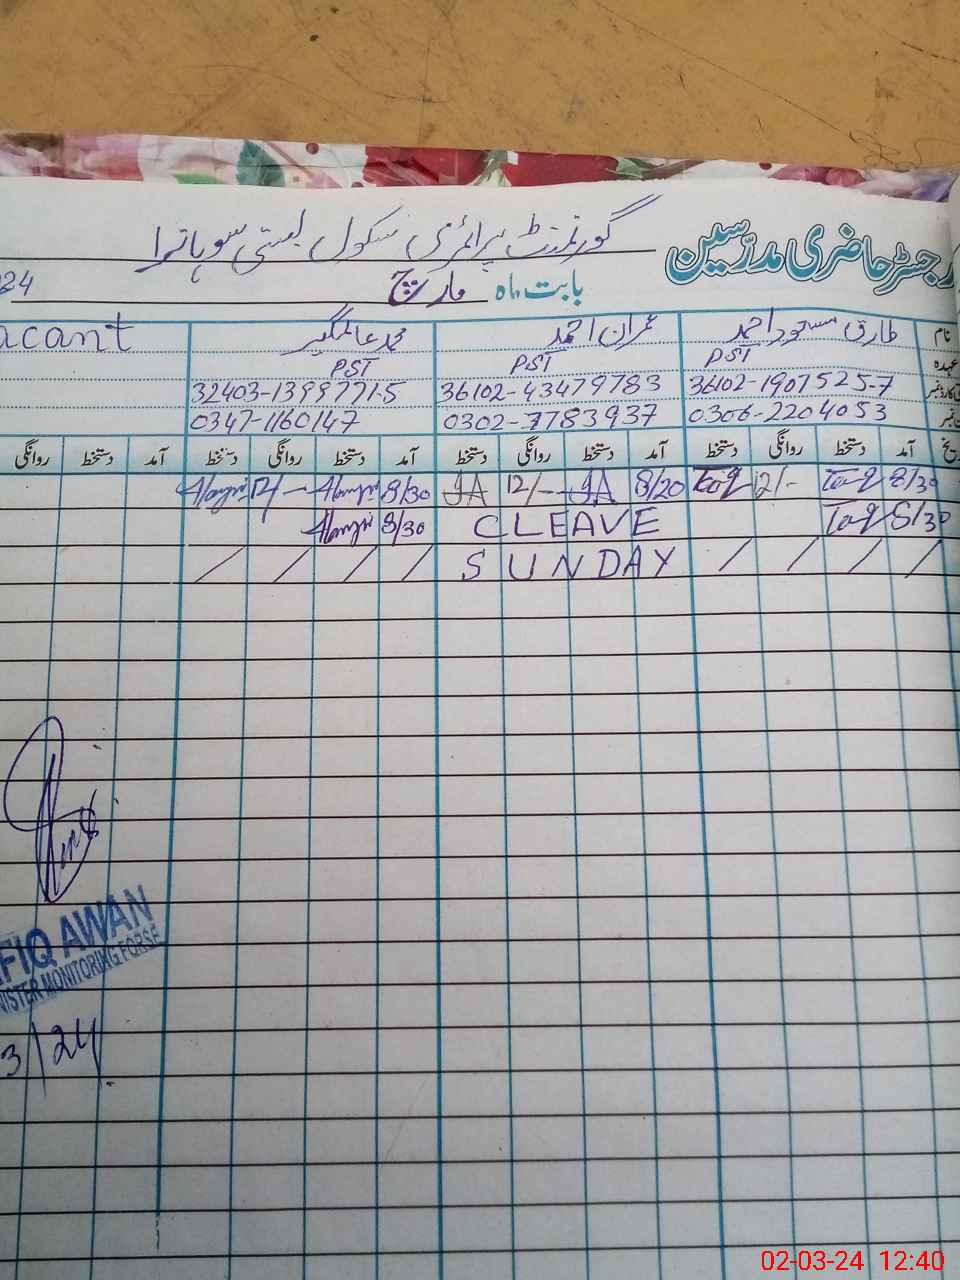 رجسٹر حاضری مدرسین گورنمنٹ پرائمری سکول بستی سوہانرا
بابت ماہ مارچ 24
نام طارق مسعود احمد عمران احمد محمد عالمگیر acant
عہدہ PST PST PST
36102-1907525-7 36102-43479783 32403-1399771-5
0306-2204053 0302-7783937 0347-1160147
آمد دستخط روانگی دستخط آمد دستخط روانگی دستخط آمد دستخط روانگی دستخط آمد دستخط روانگی
8/30 Taq 12/- Taq 8/20 IA 12/- IA 8/30 Alamgir 12/- Alamgir
8/30 Taq CLEAVE 8/30 Alamgir
/ / / / SUNDAY / / / /
FIQ AWAN
NISTER MONITORING FORSE
3/24
02-03-24 12:40